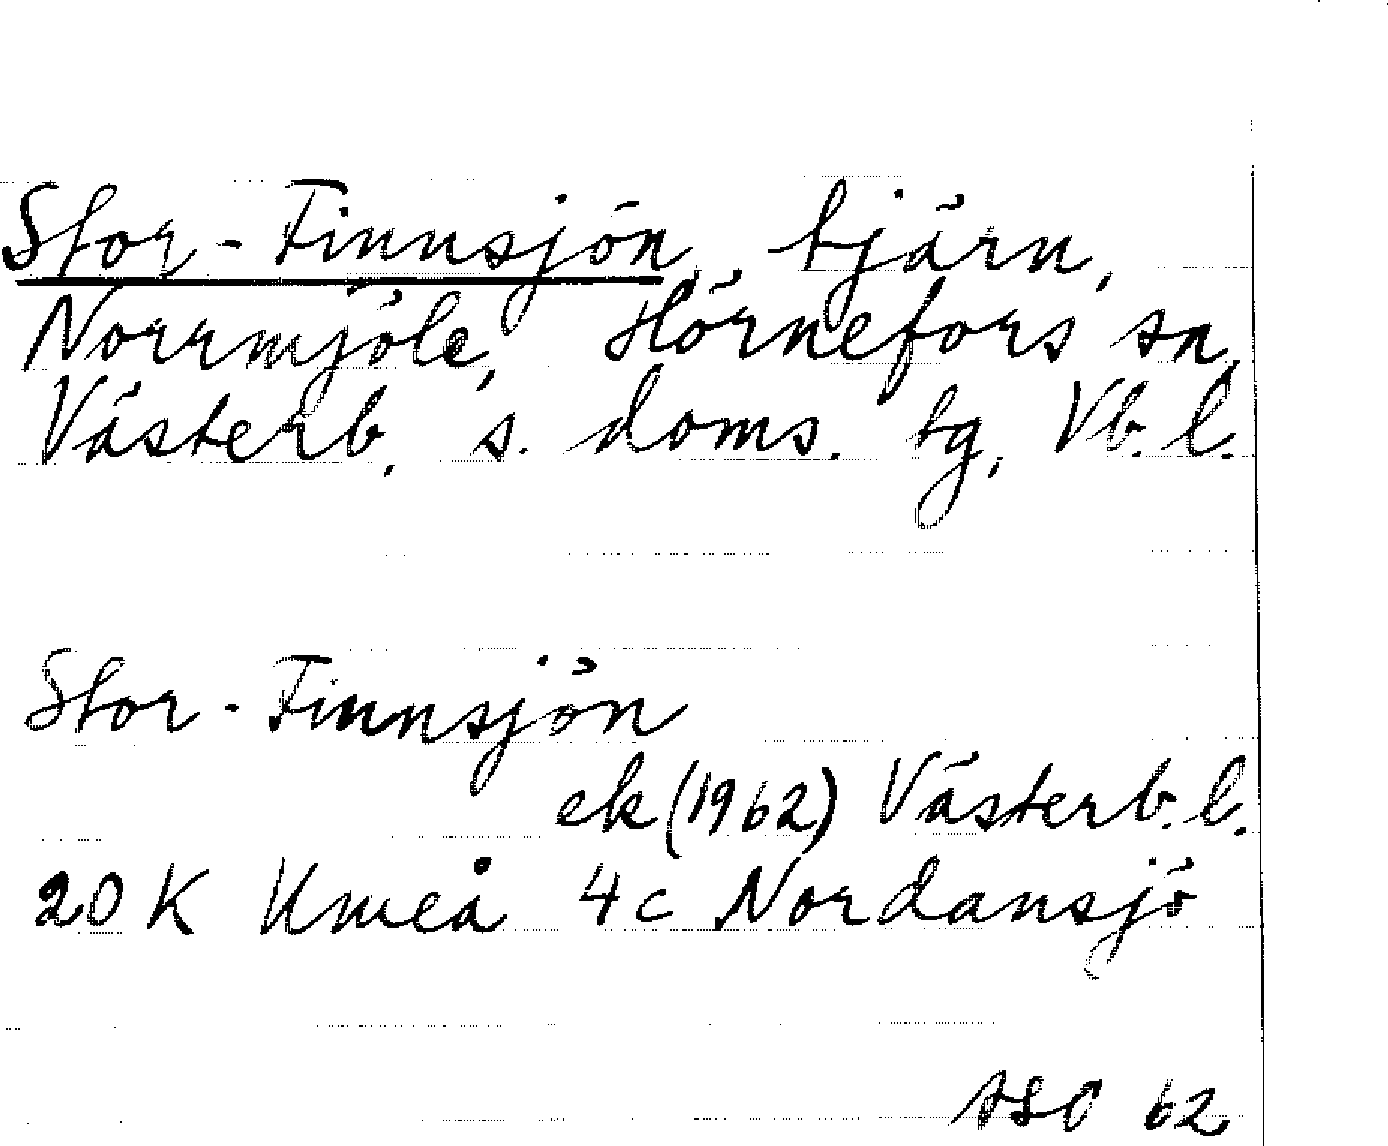 Stor-Finnsjön, tjärn,
Norrmjöle, Hörnefors sn,
Västerb. s. doms. tg, Vb. l.
Stor-Finnsjön
ek (1962) Västerb. l.
20 K Umeå 4c Nordansjö
62